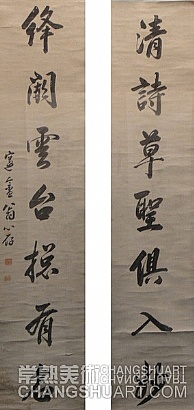 清詩草聖俱入妙
絳闕雲台揔有名
邃盦翁心存
常熟美術
CHANGSHUART
CHANGSHUART